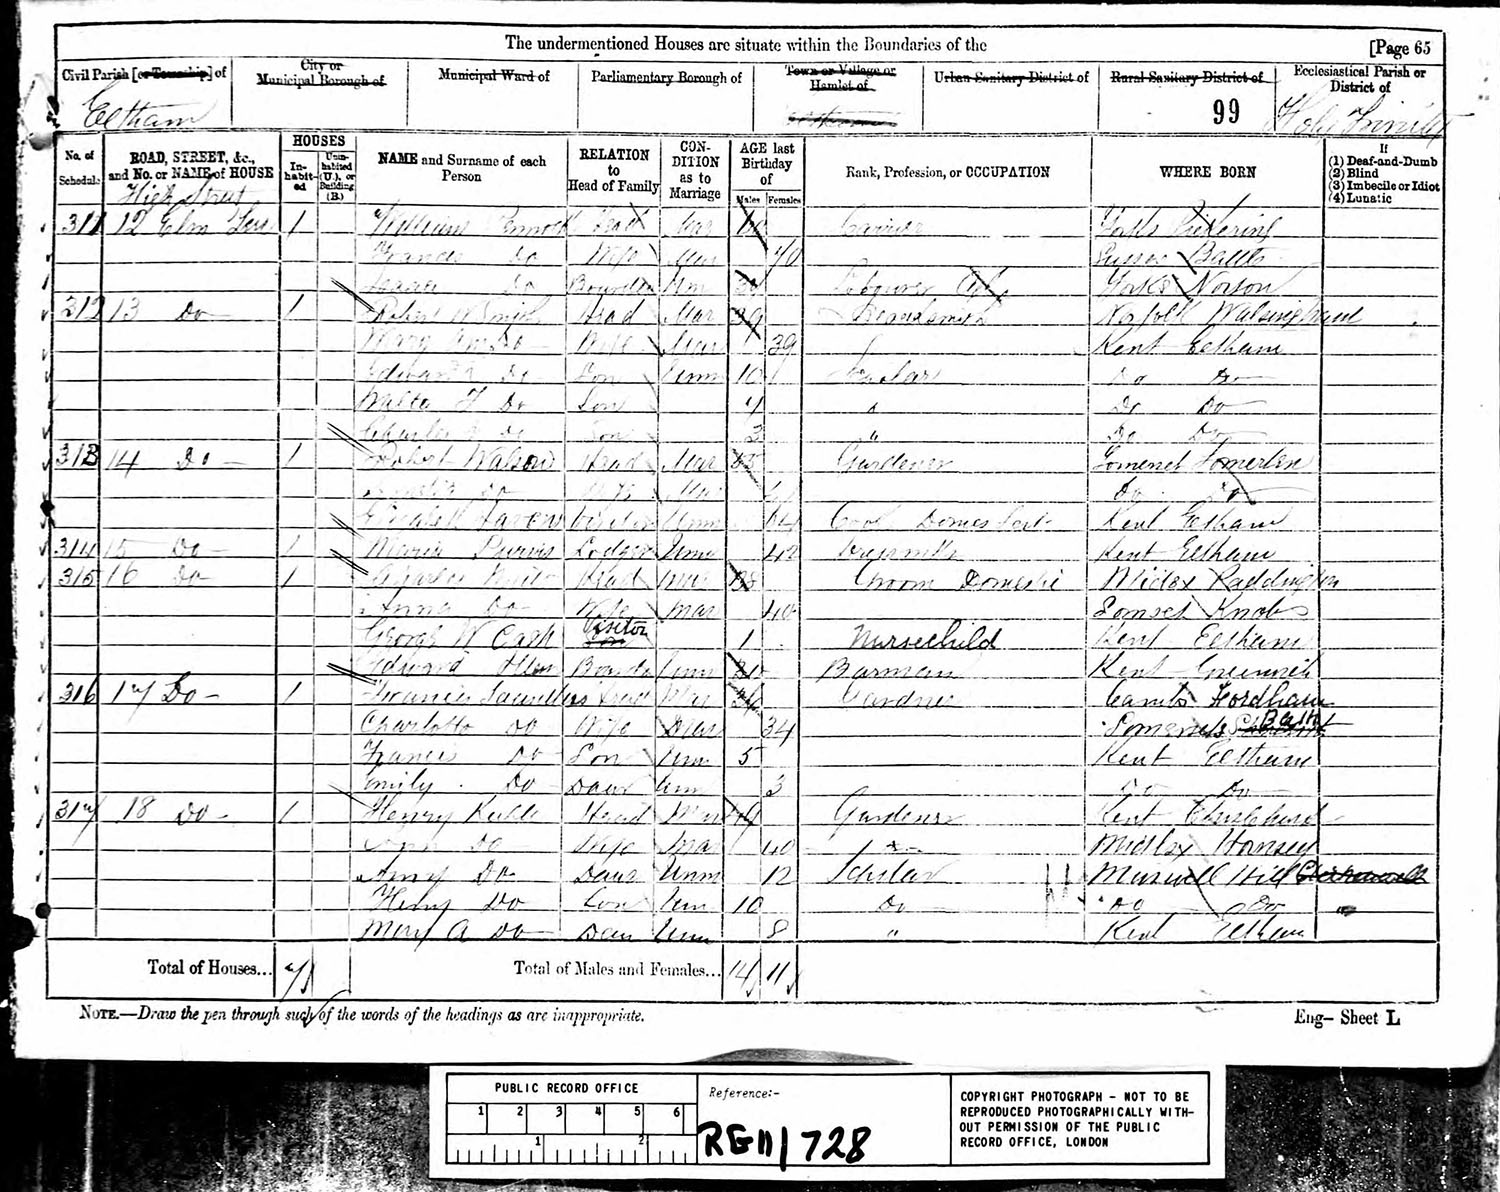 The undermentioned Houses are situate within the Boundaries of the [Page 65
Civil Parish [or Township] of City or Municipal Borough of Municipal Ward of Parliamentary Borough of Town or Village or Hamlet of Urban Sanitary District of Rural Sanitary District of Ecclesiastical Parish or District of
Eltham 99 Holy Trinity
No. of Schedule ROAD, STREET, &c., and No. or NAME of HOUSE HOUSES Inhabited Uninhabited (U.), or Building (B.) NAME and Surname of each Person RELATION to Head of Family CONDITION as to Marriage AGE last Birthday of Males Females Rank, Profession, or OCCUPATION WHERE BORN If (1) Deaf-and-Dumb (2) Blind (3) Imbecile or Idiot (4) Lunatic
High Street
311 12 Elm Terr 1 William Head Mar Yorks Pickering
Frances Do Wife Mar 40 Sussex Battle
Do Boarder Um Yorks Norton
312 13 Do 1 Robert W Smith Head Mar 39 Norfolk Walsingham
Mary Ann Do Wife Mar 39 Kent Eltham
Do Son Unm 10 Scholar Do Do
Walter F Do Son 4 Do Do
Charles Do Son 3 " Do Do
313 14 Do 1 Robert Watson Head Mar Gardener Somerset Somerton
Do Wife Mar Do Do
Elizabeth Visitor Unm 64 Cook Domestic Kent Eltham
314 15 Do 1 Maria Purvis Lodger Unm 42 Kent Eltham
315 16 Do 1 Charles Head Mar 38 Groom Domestic Midlex Paddington
Anna Do Wife Mar 40 Somset
George W Cash Visitor 1 Nursechild Kent Eltham
Edward Allen Boarder Unm 20 Barman Kent Greenwich
316 17 Do 1 Francis Saunders Head Mar 36 Gardner Cambs Fordham
Charlotte Do Wife Mar 34 Somerset Bath
Francis Do Son Um 5 Kent Eltham
Emily Do Daur Um 3 Do Do
317 18 Do 1 Henry Keeble Head Mar 49 Gardener Kent Chislehurst
Ann Do Wife Mar 40 Midlex Hornsey
Amy Do Daur Unm 12 Scholar Muswell Hill
Henry Do Son Um 10 Do Do Do
Mary A Do Daur Unm 8 " Kent Eltham
Total of Houses... 7 Total of Males and Females... 14 11
NOTE.—Draw the pen through such of the words of the headings as are inappropriate. Eng— Sheet L
PUBLIC RECORD OFFICE
1 2 3 4 5 6
1 2
Reference:-
RG 11/728
COPYRIGHT PHOTOGRAPH - NOT TO BE
REPRODUCED PHOTOGRAPHICALLY WITH-
OUT PERMISSION OF THE PUBLIC
RECORD OFFICE, LONDON